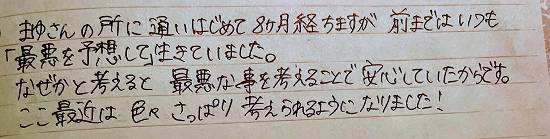 まゆさんの所に通いはじめて8ヶ月経ちますが 前まではいつも
「最悪を予想して」生きていました。
なぜかと考えると 最悪な事を考えることで安心していたからです。
ここ最近は 色々 さっぱり 考えられるようになりました!